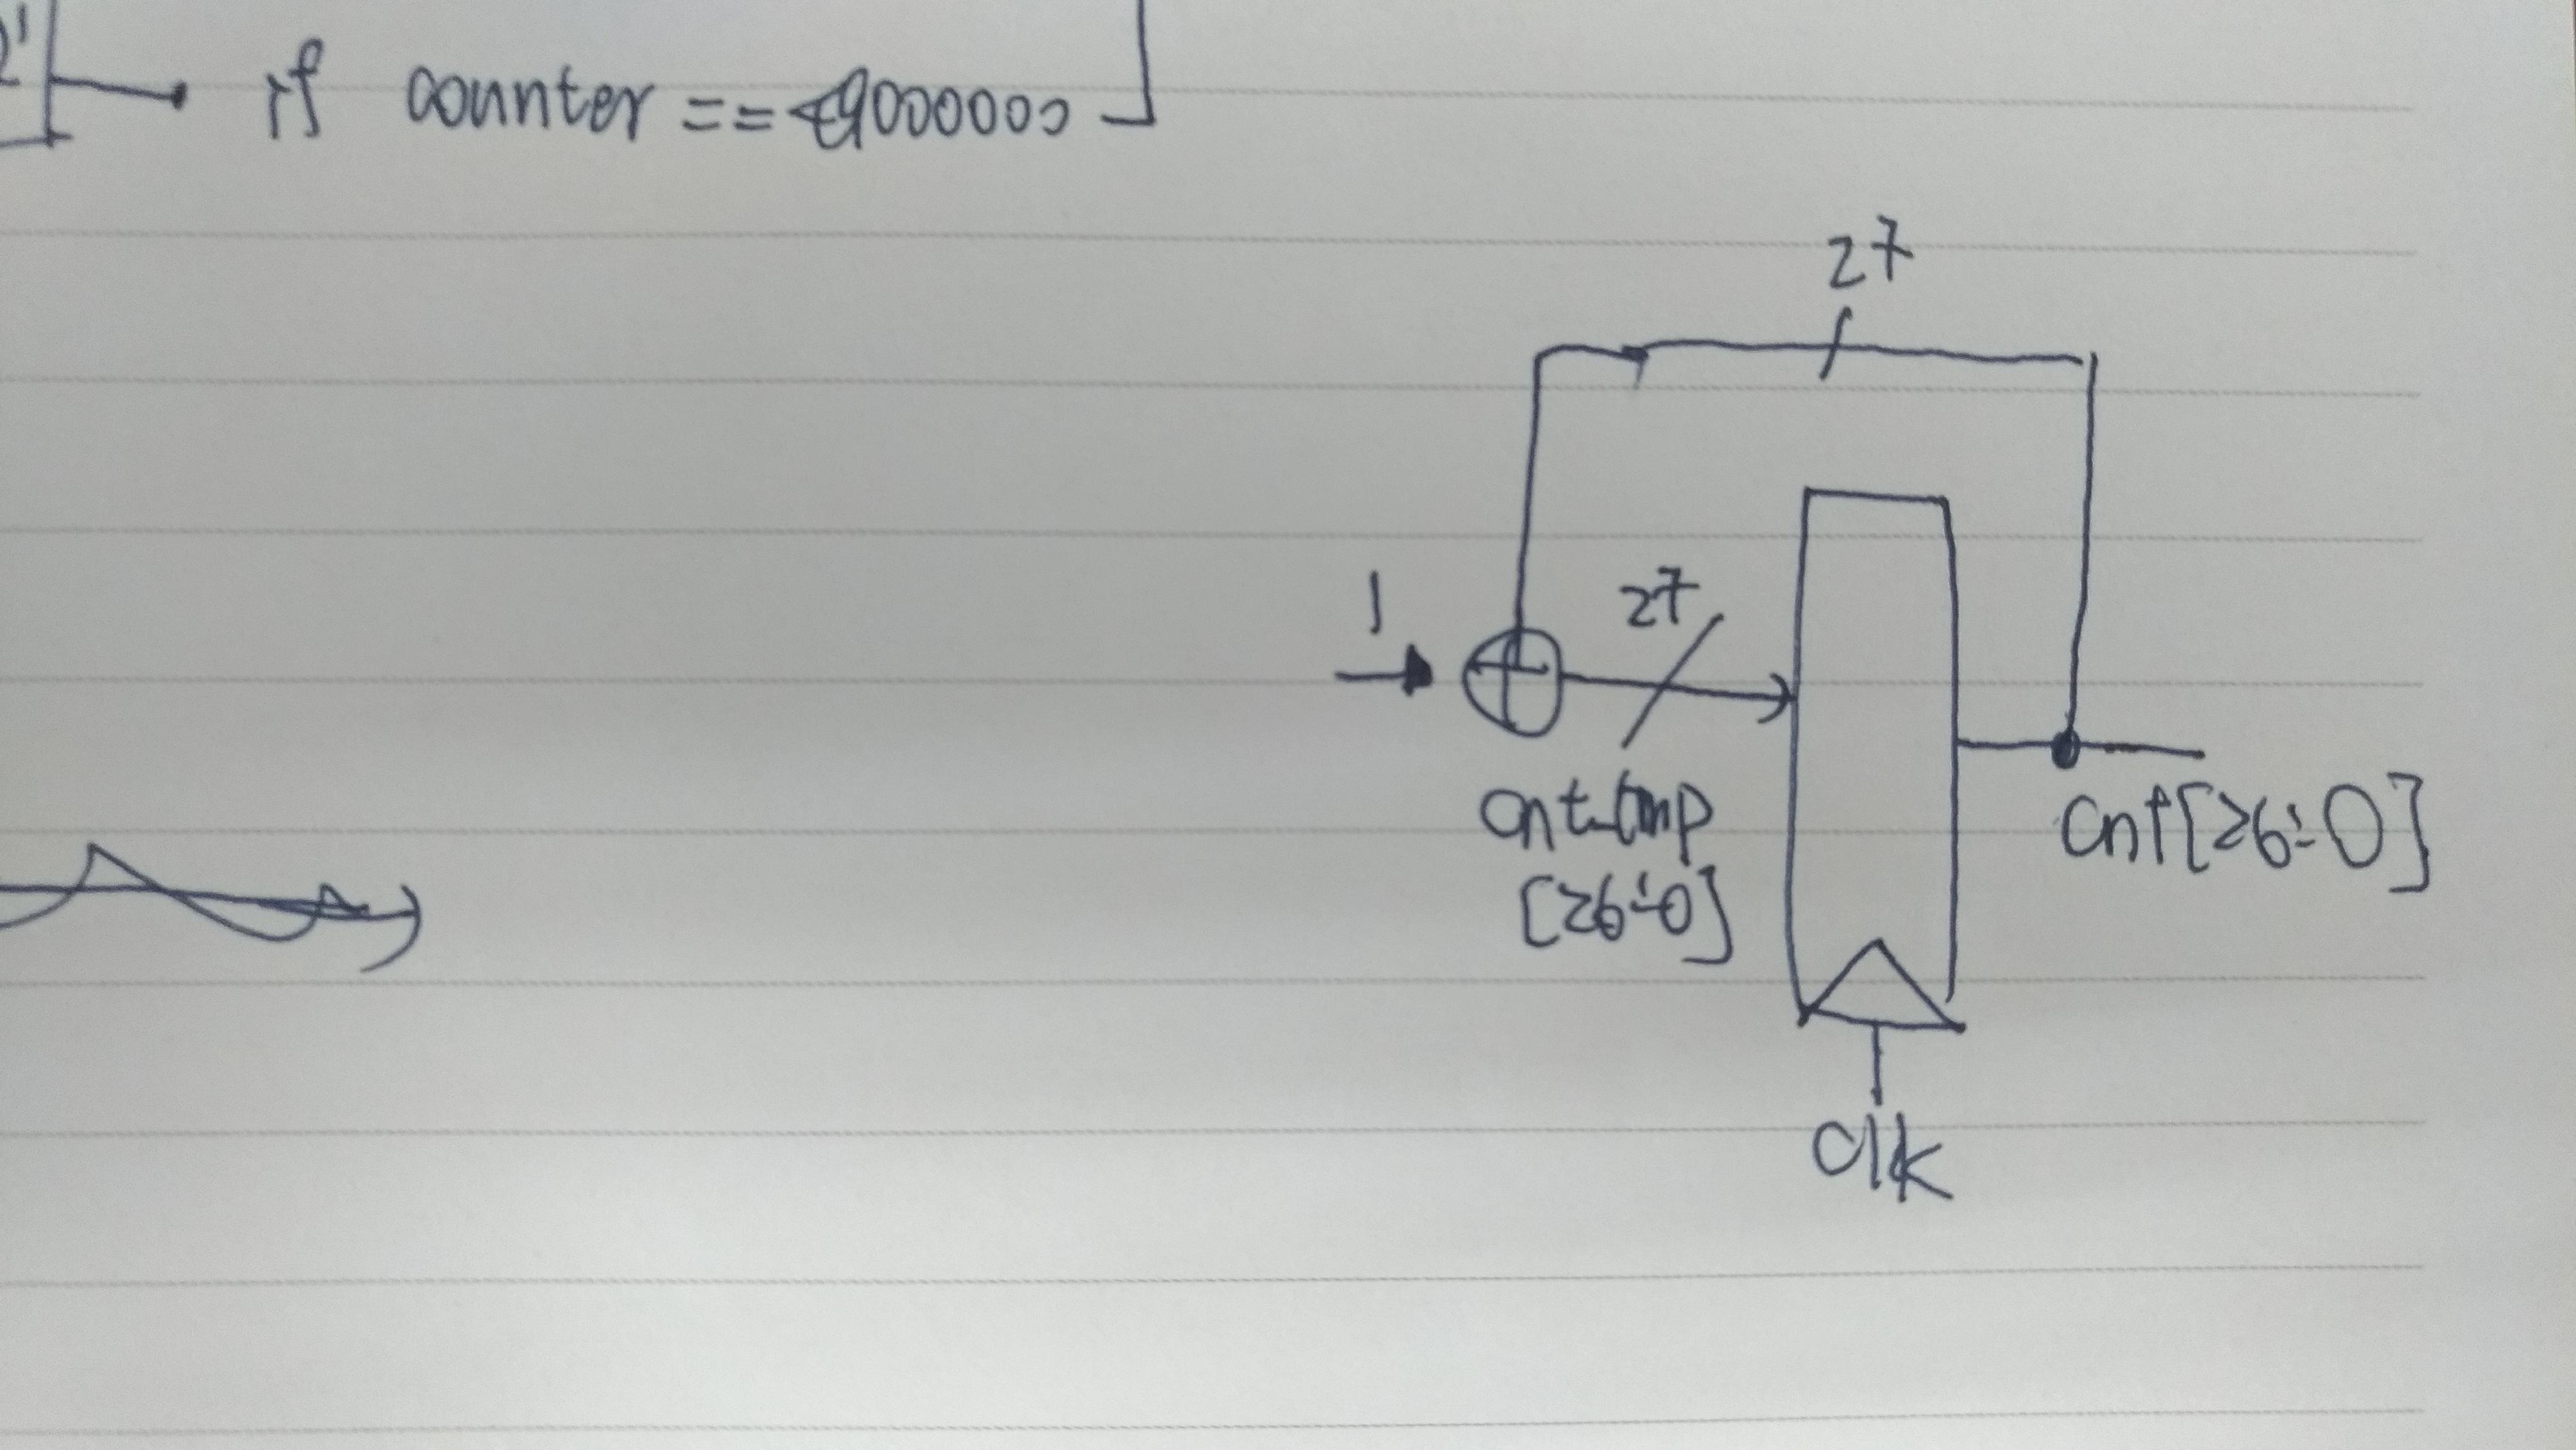 if counter == 49000000
27
1
27
cnt_tmp
[26:0]
cnt[26:0]
clk